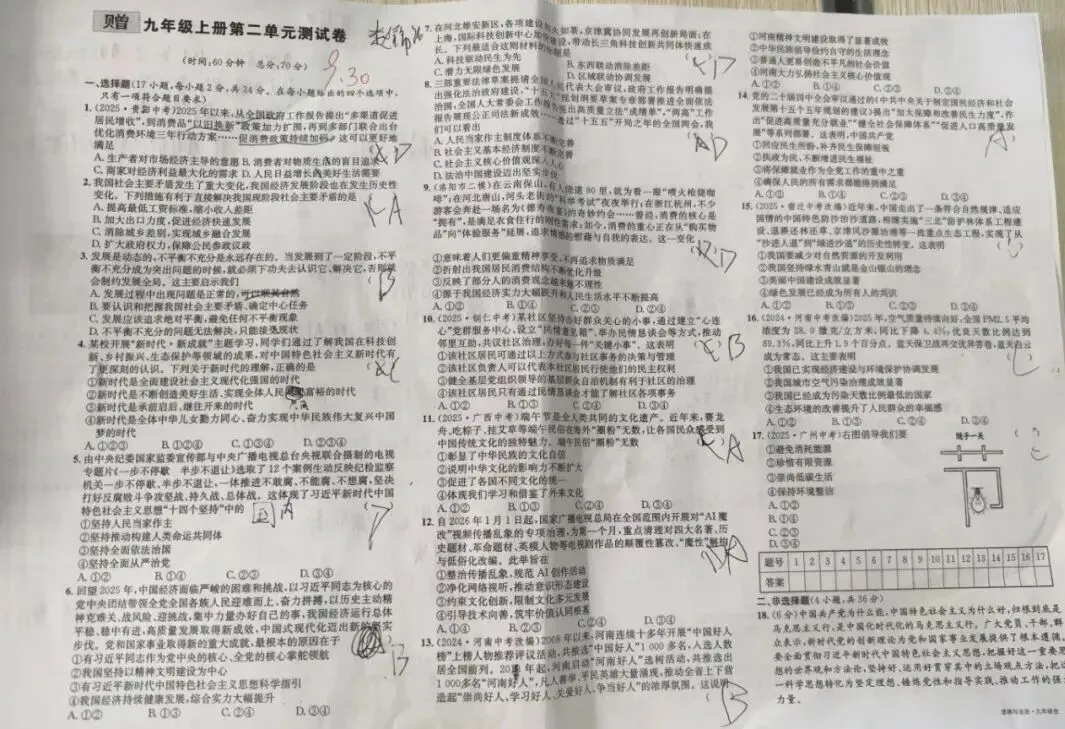 赠 九年级上册第二单元测试卷
(时间:60分钟 总分:70分)
9.30
一、选择题(17小题,每小题2分,共34分。在每小题给出的四个选项中,
只有一项符合题目要求)
1.(2025·贵港中考)2025年以来,从全国政府工作报告提出“多渠道促进
居民增收”,到消费品“以旧换新”政策加力扩围,再到多部门联合出台
优化消费环境三年行动方案……促消费政策持续加码。这可以更好地
满足
A.生产者对市场经济主导的意愿 B.消费者对物质生活的盲目追求
C.商家对经济利益最大化的需求 D.人民日益增长的美好生活需要
D
2.我国社会主要矛盾发生了重大变化,我国经济发展阶段也在发生历史性
变化。下列措施有利于直接解决我国现阶段社会主要矛盾的是
A.提高最低工资标准,缩小收入差距
B.加大出口力度,促进经济快速发展
C.消除城乡差别,实现城乡融合发展
D.扩大政府权力,保障公民参政议政
A
3.发展是动态的,不平衡不充分是永远存在的。当发展到了一定阶段,不平
衡不充分成为突出问题的时候,就必须下功夫去认识它、解决它,否则就
会制约发展全局。这主要启示我们
A.发展过程中出现问题是正常的,可以顺其自然
B.要认识和把握我国社会主要矛盾、确定中心任务
C.发展应该追求绝对平衡,避免任何不平衡现象
D.不平衡不充分的问题无法解决,只能接受现状
B
4.某校开展“新时代·新成就”主题学习,同学们通过了解我国在科技创
新、乡村振兴、生态保护等领域的成果,对中国特色社会主义新时代有
了更深刻的认识。下列关于新时代的理解,正确的是
①新时代是全面建设社会主义现代化强国的时代
②新时代是不断创造美好生活、实现全体人民富裕的时代
③新时代是承前启后、继往开来的时代
④新时代是全体中华儿女勠力同心、奋力实现中华民族伟大复兴中国
梦的时代
A.①②③ B.①②④ C.①③④ D.②③④
C
5.由中央纪委国家监委宣传部与中央广播电视总台央视联合摄制的电视
专题片《一步不停歇 半步不退让》选取了12个案例生动反映纪检监察
机关一步不停歇、半步不退让,一体推进不敢腐、不能腐、不想腐,坚决
打好反腐败斗争攻坚战、持久战、总体战。这体现了习近平新时代中国
特色社会主义思想“十四个坚持”中的
国内
①坚持人民当家作主
②坚持推动构建人类命运共同体
③坚持全面依法治国
④坚持全面从严治党
A.①② B.①④ C.②③ D.③④
6.回望2025年,中国经济面临严峻的困难和挑战,以习近平同志为核心的
党中央团结带领全党全国各族人民迎难而上、奋力拼搏,以历史主动精
神克难关、战风险、迎挑战,集中力量办好自己的事,我国经济运行总体
平稳、稳中有进,高质量发展取得新成效,中国式现代化迈出新的坚实
步伐。党和国家事业取得新的重大成就,最根本的原因在于
①有习近平同志作为党中央的核心、全党的核心掌舵领航
②我国坚持以精神文明建设为中心
③有习近平新时代中国特色社会主义思想科学指引
④我国经济持续健康发展,综合实力大幅提升
A.①② B.①③ C.②④ D.③④
B
7.在河北雄安新区,各项建设如火如荼,京津冀协同发展再创新局面;在
上海,国际科技创新中心加快建设,带动长三角科技创新共同体快速成
长。下列最适合这则材料的标题是
A.科技驱动民生为先 B.东西联动消除差距
C.潜力无限绿色发展 D.区域联动协调发展
D
8.三部重要法律草案提请全国人民代表大会审议,政府工作报告明确提
出强化法治政府建设,“十五五”规划纲要草案专章部署推进全面依法
治国,全国人大常委会工作报告提出高质量立法“成绩单”,“两高”工作
报告展现公正司法新成效……透过“十五五”开局之年的全国两会,我
们可以看出
A.人民当家作主制度体系不断完善
B.社会主义基本经济制度不断完善
C.社会主义核心价值观深入人心
D.法治中国建设迈出坚实步伐
D
9.(洛阳市二模)在云南保山,有人绕道80里,就为看一眼“喷火枪烧咖
啡”;在河北唐山,河头老街的“科举考试”夜夜举行;在浙江杭州,不少
游客会奔赴一场名为《德寿夜宴》的奇妙约会……曾经,消费的核心是
“拥有”,是满足衣食住行的刚性需求;如今,消费的重心正在从“购买物
品”向“体验服务”延展,追求情感的慰藉与自我的表达。这一变化
D
①意味着人们更偏重精神享受,不再追求物质满足
②折射出我国居民消费结构不断优化升级
③反映了部分人的消费观念越来越不理性
④源于我国经济实力大幅跃升和人民生活水平不断提高
A.①② B.①④ C.②③ D.②④
10.(2025·铜仁中考)某社区坚持办好群众关心的小事,通过建立“心连
心”党群服务中心、设立“民情意见箱”、举办民情恳谈会等方式,推动
邻里互助,共议社区治理,办好每一件“关键小事”。这表明
①该社区居民可通过以上方式参与社区事务的决策与管理
②该社区负责人可以代表本社区居民行使他们的民主权利
③健全基层党组织领导的基层群众自治机制有利于社区的治理
④该社区居民只有通过民情恳谈会才能了解社区各项事务
A.①② B.①③ C.②④ D.③④
B
11.(2025·广西中考)端午节是全人类共同的文化遗产。近年来,赛龙
舟、吃粽子、挂艾草等端午民俗在海外“圈粉”无数,让各国民众感受到
中国传统文化的独特魅力。端午民俗“圈粉”无数
①彰显了中华民族的文化自信
②说明中华文化的影响力不断扩大
③促进了各国不同文化的统一
④体现我们学习和借鉴了外来文化
A.①② B.①③ C.②④ D.③④
A
12.自2026年1月1日起,国家广播电视总局在全国范围内开展对“AI魔
改”视频传播乱象的专项治理,为第一个月,重点清理对四大名著、历
史题材、革命题材、英模人物等电视剧作品的颠覆性篡改、“魔性”解构
与低俗化改编。此举旨在
①整治传播乱象,规范AI创作活动
②净化网络视听,推动意识形态建设
③约束文化创新,限制文化多元发展
④引导技术向善,筑牢价值认同根基
A.①② B.②③ C.③④ D.①④
13.(2024·河南中考改编)2008年以来,河南连续十多年开展“中国好人
榜”上榜人物推荐评议活动,共推选“中国好人”1 000多名,入选人数
居全国前列。2018年起,河南启动“河南好人”选树活动,共推选出
1 000多名“河南好人”,凡人善举、平民英雄大量涌现,推动全省上下营
造起“崇尚好人、学习好人、关爱好人、争当好人”的浓厚氛围。这说明
B
①河南精神文明建设取得了显著成效
②中华民族倡导俭约自守的生活理念
③普通人更易创造不平凡的社会价值
④河南大力弘扬社会主义核心价值观
A.①② B.①④ C.②③ D.③④
14.党的二十届四中全会审议通过的《中共中央关于制定国民经济和社会
发展第十五个五年规划的建议》提出“加大保障和改善民生力度”,作
出“促进高质量充分就业”“健全社会保障体系”“促进人口高质量发
展”等系列部署。这表明,中国共产党
①回应民生所盼,补齐民生保障短板
②执政为民,不断增进民生福祉
③将保障就业作为全党工作的重中之重
④确保人民的所有需求都能得到满足
A.①② B.①④ C.②③ D.③④
A
15.(2025·宿迁中考改编)近年来,中国走出了一条符合自然规律、适应
国情的中国特色防沙治沙道路,相继实施“三北”防护林体系工程建
设、退耕还林还草、京津风沙源治理等一批重点生态工程,实现了从
“沙进人退”到“绿进沙退”的历史性转变。这表明
①我国要减少对自然资源的开发利用
②我国坚持绿水青山就是金山银山的理念
③美丽中国建设成效显著
④绿色发展已经成为所有人的共识
A.①② B.①④ C.②③ D.③④
16.(2024·河南中考改编)2025年,空气质量持续向好,全国PM2.5平均
浓度为28.0微克/立方米,同比下降4.4%;优良天数比例达到
89.3%,同比上升1.9个百分点。蓝天保卫战再交优异答卷,蓝天白云
成为常态。这主要表明
①我国已实现经济建设与环境保护协调发展
②我国城市空气污染治理成效显著
③我国已经成为污染天数比例最低的国家
④生态环境的改善提升了人民群众的幸福感
A.①② B.①③ C.②④ D.③④
17.(2025·广州中考)右图倡导我们要
随手一关
①避免消耗能源
②珍惜有限资源
③崇尚低碳生活
④保持环境整洁
A.①②
B.①④
C.②③
D.③④
题号 1 2 3 4 5 6 7 8 9 10 11 12 13 14 15 16 17
答案
二、非选择题(4小题,共36分)
18.(6分)中国共产党为什么能,中国特色社会主义为什么好,归根到底是
马克思主义行,是中国化时代化的马克思主义行。广大党员、干部、群
众表示,新时代党的创新理论为党和国家事业发展提供了根本遵循,
要全面贯彻习近平新时代中国特色社会主义思想,把握好这一重要思
想的世界观和方法论,坚持好、运用好贯穿其中的立场观点方法,把这
一科学思想转化为坚定理想、锤炼党性和指导实践、推动工作的强大
力量。
道德与法治·九年级全